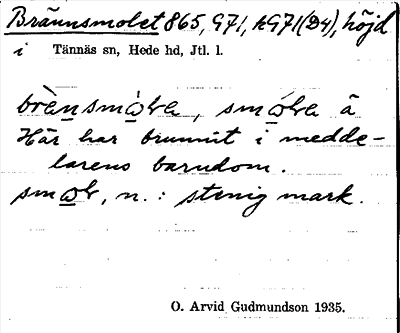 Brännsmolet 865, G71, kG71(D4), höjd
i Tännäs sn, Hede hd, Jtl. l.
smǫ́lɛ å
Här har brunnit i medde-
larens barndom.
n.: stenig mark.
O. Arvid Gudmundson 1935.